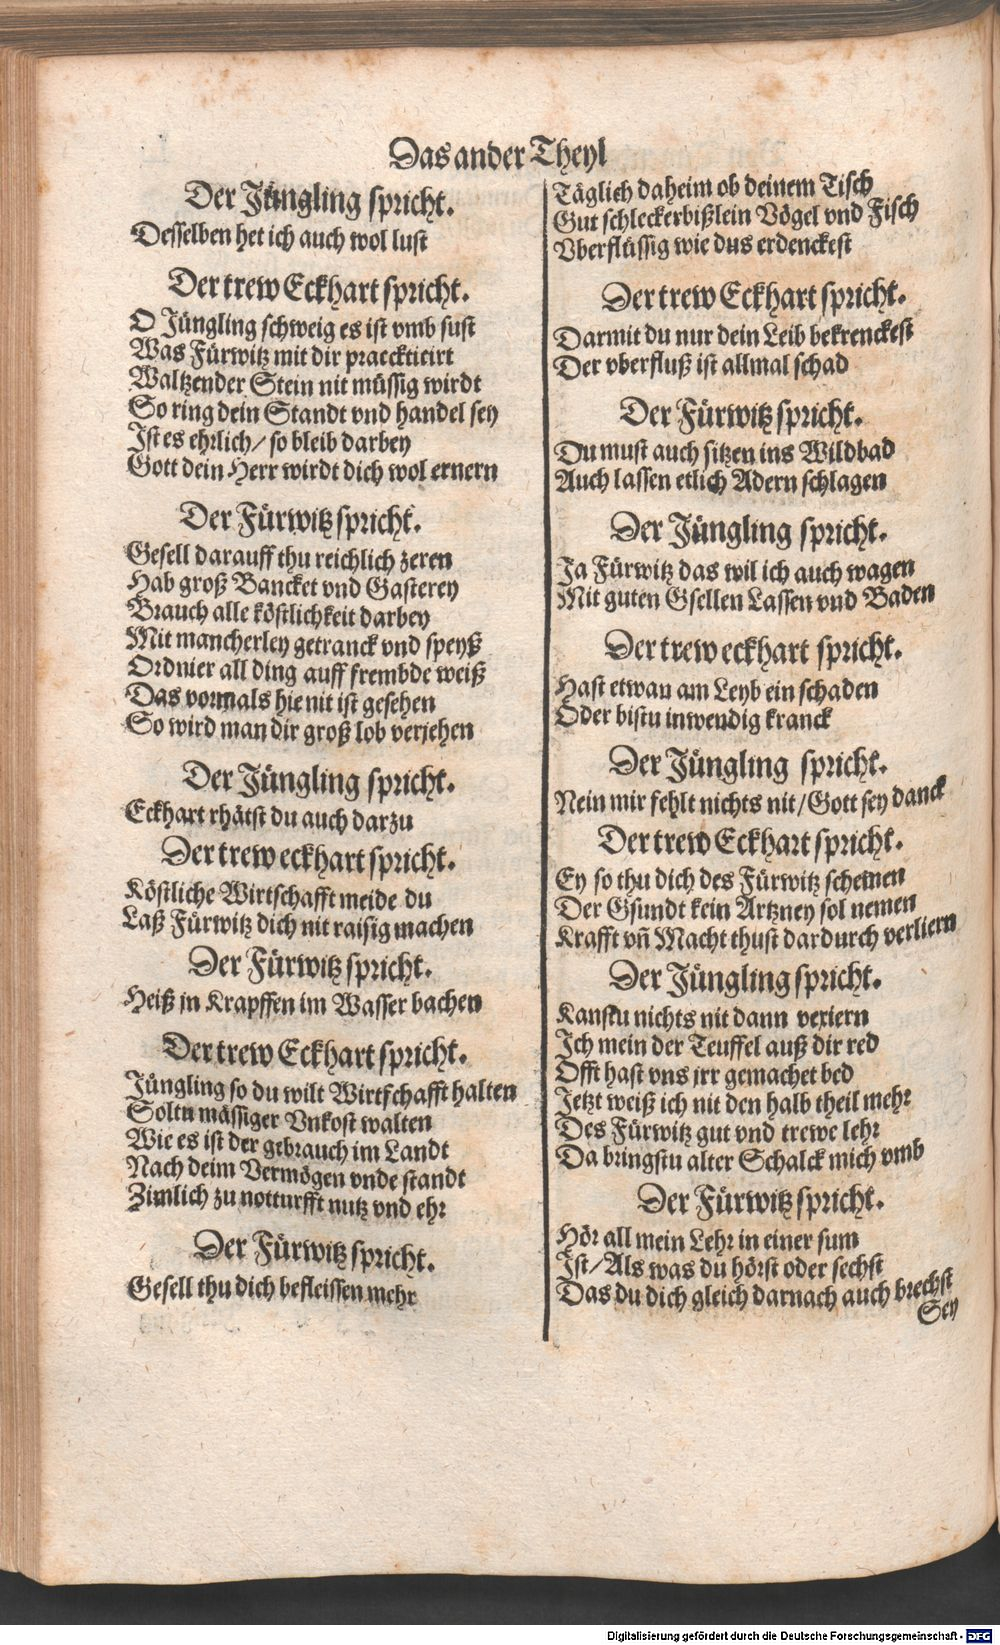 Das ander Theyl
Der Jüngling spricht.
Desselben het ich auch wol lust
Der trew Eckhart spricht.
O Jüngling schweig es ist vmb sust
Was Fürwitz mit dir praeckticirt
Waltzender Stein nit müssig wirdt
So ring dein Standt vnd handel sey
Ist es ehrlich/ so bleib darbey
Gott dein Herr wirdt dich wol ernern
Der Fürwitz spricht.
Gesell darauff thu reichlich zeren
Hab groß Bancket vnd Gasterey
Brauch alle köstlichkeit darbey
Mit mancherley getranck vnd speyß
Ordnier all ding auff frembde weiß
Das vormals hie nit ist gesehen
So wird man dir groß lob verjehen
Der Jüngling spricht.
Eckhart rhätst du auch darzu
Der trew eckhart spricht.
Köstliche Wirtschafft meide du
Laß Fürwitz dich nit raisig machen
Der Fürwitz spricht.
Heiß in Krapffen im Wasser bachen
Der trew Eckhart spricht.
Jüngling so du wilt Wirtschafft halten
Soltu mässiger Vnkost walten
Wie es ist der gebrauch im Landt
Nach deim Vermögen vnde standt
Zimlich zu notturfft nutz vnd ehr
Der Fürwitz spricht.
Gesell thu dich befleissen mehr
Täglich daheim ob deinem Tisch
Gut schleckerbißlein Vögel vnd Fisch
Vberflüssig wie dus erdenckest
Der trew Eckhart spricht.
Darmit du nur dein Leib bekrenckest
Der vberfluß ist allmal schad
Der Fürwitz spricht.
Du must auch sitzen ins Wildbad
Auch lassen etlich Adern schlagen
Der Jüngling spricht.
Ja Fürwitz das wil ich auch wagen
Mit guten Gsellen Lassen vnd Baden
Der trew eckhart spricht.
Hast etwan am Leyb ein schaden
Oder bistu inwendig kranck
Der Jüngling spricht.
Nein mir fehlt nichts nit/ Gott sey danck
Der trew Eckhart spricht.
Ey so thu dich des Fürwitz schemen
Der Gsundt kein Artzney sol nemen
Krafft vñ Macht thust dardurch verliern
Der Jüngling spricht.
Kanstu nichts nit dann vexiern
Ich mein der Teuffel auß dir red
Offt hast vns jrr gemachet bed
Jetzt weiß ich nit den halb theil mehr
Des Fürwitz gut vnd trewe lehr
Da bringstu alter Schalck mich vmb
Der Fürwitz spricht.
Hör all mein Lehr in einer sum
Ist/ Als was du hörst oder sechst
Das du dich gleich darnach auch brechst
Sey
Digitalisierung gefördert durch die Deutsche Forschungsgemeinschaft - DFG